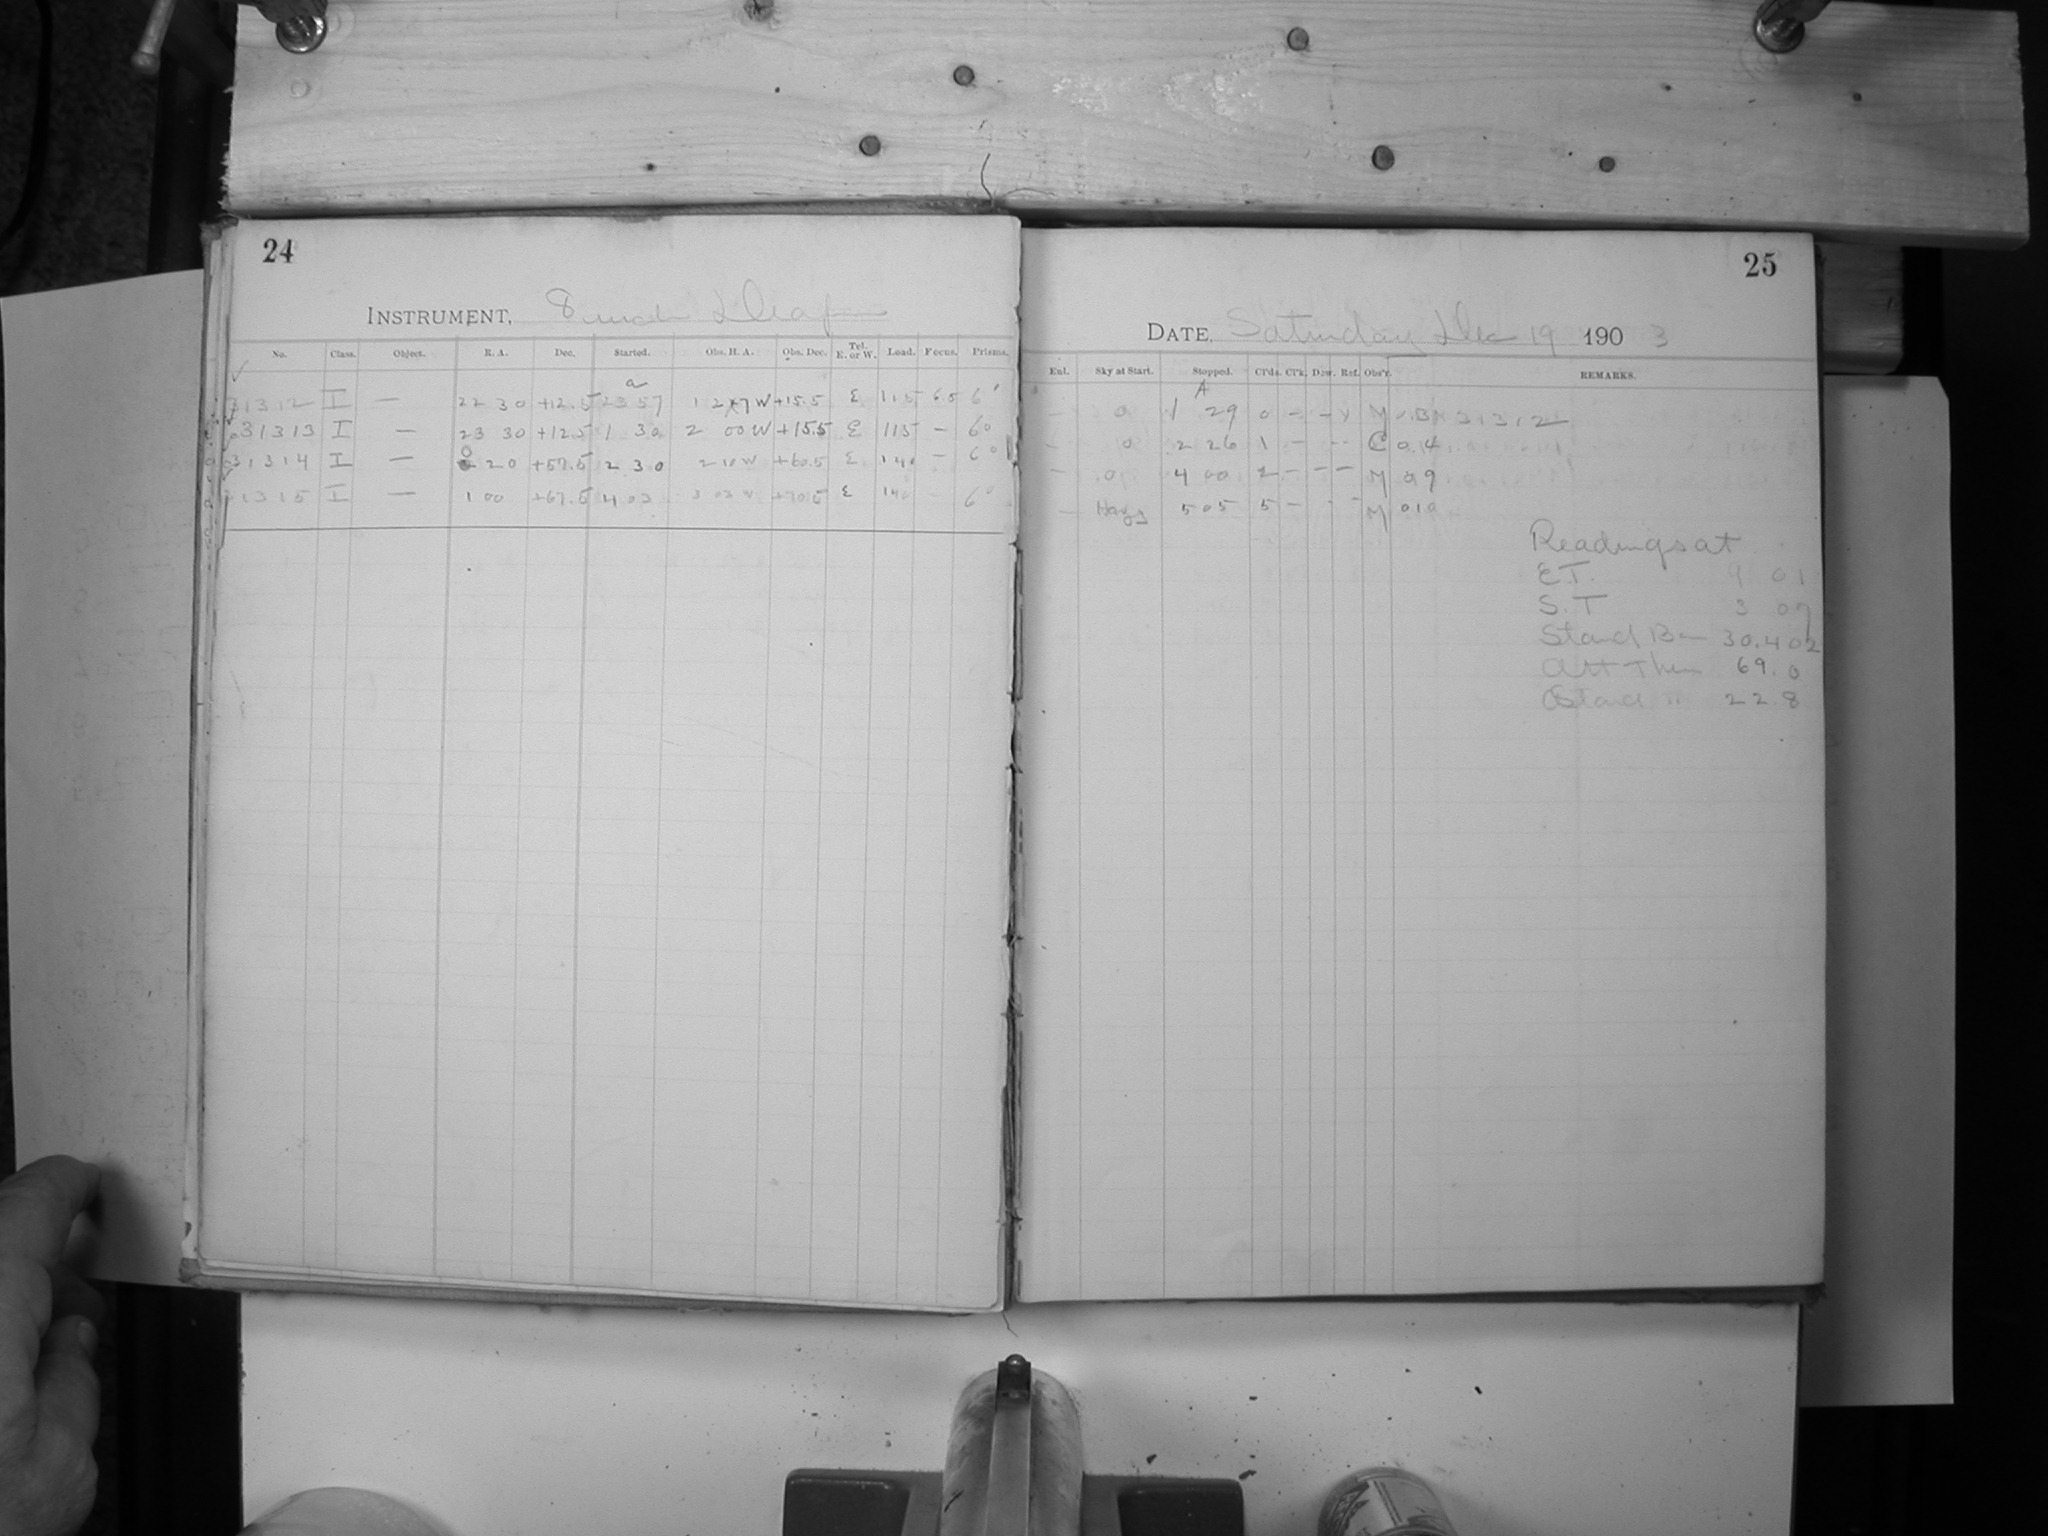 24
INSTRUMENT, 8 inch Draper
No. Class. Object. R. A. Dec. Started. Obs. H. A. Obs. Dec. Tel. E. or W. Load. Focus. Prisms.
31312 I — 22 30 +12.5 23 57 1 27 W +15.5 E 115 6.5 6°
31313 I — 23 30 +12.5 1 30 2 00 W +15.5 E 115 — 6°
31314 I — 0 20 +57.5 2 30 2 10 W +60.5 E 140 — 6°
31315 I — 1 00 +67.5 4 03 3 03 W +70.5 E 140 6°
25
DATE, Saturday Dec 19 1903
Enl. Sky at Start. Stopped. Cl'ds. Cl'k. Dew. Ref. Obs'r. REMARKS.
— 0 1 29 0 — — Y M 31312
— 0 2 26 1 — -- C 0.4
— 0 4 00 2 - - - M 09
— Hazy 5 05 5 — - - M 010
Readings at
E.T. 9 01
S.T 3 07
Stand Bar 30.402
Att Ther 69.0
Stand " 22.8